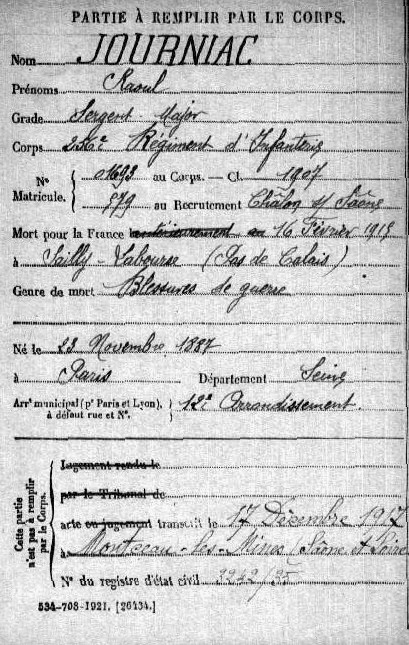 PARTIE À REMPLIR PAR LE CORPS.
Nom JOURNIAC
Prénoms Raoul
Grade Sergent Major
Corps Régiment d'Infanterie
N° Matricule. 01693 au Corps. — Cl. 1907
879 au Recrutement Châlon s/ Saône
Mort pour la France antérieurement au 16 Février 1915
à Sailly-Labourse (Pas de Calais)
Genre de mort Blessures de guerre
Né le 23 Novembre 1887
à Paris Département Seine
Arrt municipal (pr Paris et Lyon), à défaut rue et N°. 12e Arrondissement.
Cette partie n'est pas à remplir par le Corps.
Jugement rendu le
par le Tribunal de
acte ou jugement transcrit le 17 Décembre 1917
à Montceau-les-Mines (Saône et Loire
N° du registre d'état civil 2242/35
534-708-1921. [26434.]